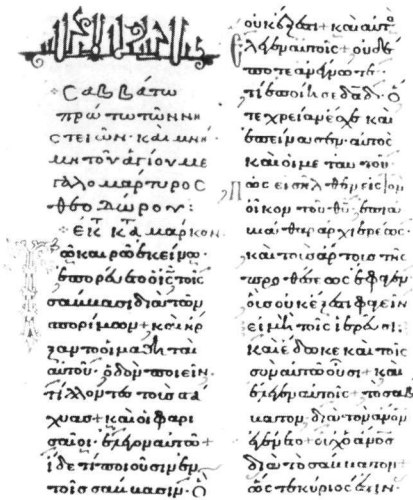 Σαββάτω
πρώτω τῶν νη
στειῶν· καὶ μνή
μη τοῦ ἁγίου με
γαλομάρτυρος
θεοδώρου:
ἐκ τ κτ μάρκον·
Τῶ καιρῶ ἐκείνω·
ἐπορεύετο ὁ ις τοῖς
σάββασι διὰ τῶν
σπορίμων + καὶ ἤρ
ξαντο οἱ μαθηταὶ
αὐτοῦ· ὁδὸν ποιεῖν·
τίλλοντες τοὺς στά
χυας + καὶ οἱ φαρι
σαῖοι· ἔλεγον αὐτῶ +
ἴδε τί ποιοῦσιν ἐν
τοῖς σάββασιν· ὃ
οὐκ ἔξεστι + καὶ αὐτὸς
ἔλεγεν αὐτοῖς + οὐδέ
ποτε ἀνέγνωτε·
τί ἐποίησε δᾶδ· ὅ
τε χρείαν ἔσχε καὶ
ἐπείνασεν· αὐτὸς
καὶ οἱ μετ αὐτοῦ·
πῶς εἰσῆλθεν εἰς τὸν
οἶκον τοῦ θυ ἐπὶ ἀ
βιάθαρ ἀρχιερέως·
καὶ τοὺς ἄρτους τῆς
προθέσεως ἔφαγεν
οὓς οὐκ ἔξεστι φαγεῖν
εἰ μὴ τοῖς ἱερεῦσι·
καὶ ἔδωκε καὶ τοῖς
σὺν αὐτῶ οὖσι + καὶ
ἔλεγεν αὐτοῖς + τὸ σάβ
βατον, διὰ τὸν ἄνον
ἐγένετο + οὐχ ὁ ἄνος
διὰ τὸ σάββατον +
ὥστε κύριός ἐστιν·